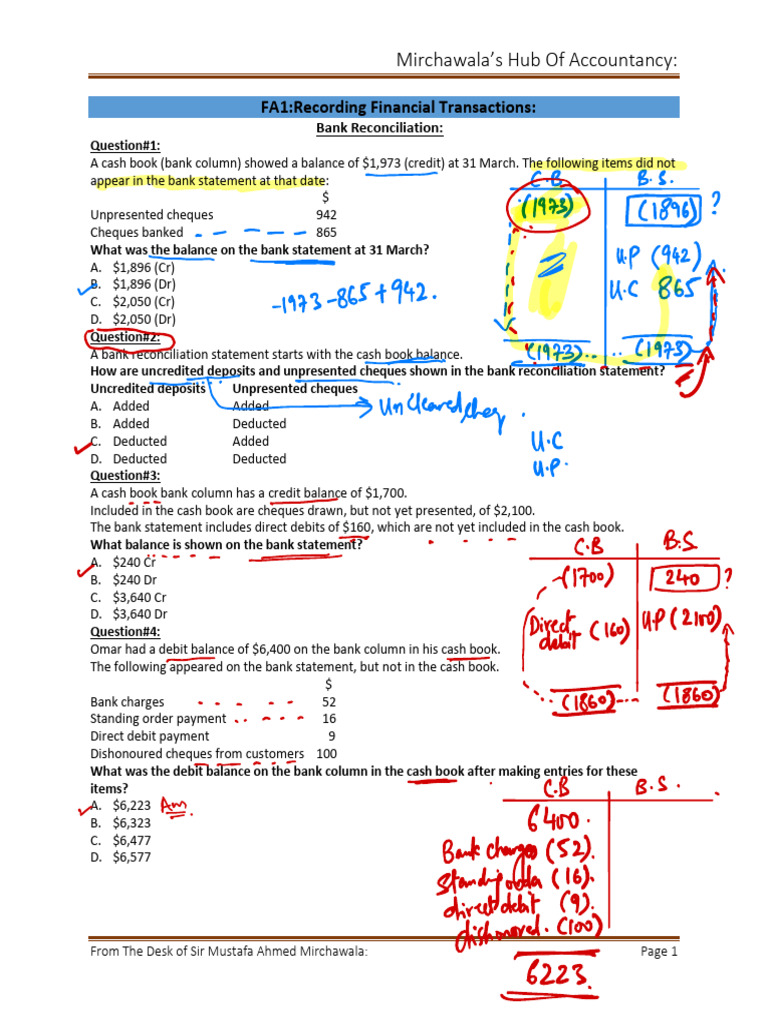 Mirchawala's Hub Of Accountancy:
FA1:Recording Financial Transactions:
Bank Reconciliation:
Question#1:
A cash book (bank column) showed a balance of $1,973 (credit) at 31 March. The following items did not
appear in the bank statement at that date:
$
Unpresented cheques 942
Cheques banked 865
What was the balance on the bank statement at 31 March?
A. $1,896 (Cr)
B. $1,896 (Dr)
C. $2,050 (Cr)
D. $2,050 (Dr)
-1973-865+942.
C.B B.S.
(1973) (1896) ?
U.P (942)
U.C 865
(1973) (1973)
Question#2:
A bank reconciliation statement starts with the cash book balance.
How are uncredited deposits and unpresented cheques shown in the bank reconciliation statement?
Uncredited deposits Unpresented cheques
A. Added Added
B. Added Deducted
C. Deducted Added
D. Deducted Deducted
Uncleared cheq.
U.C
U.P.
Question#3:
A cash book bank column has a credit balance of $1,700.
Included in the cash book are cheques drawn, but not yet presented, of $2,100.
The bank statement includes direct debits of $160, which are not yet included in the cash book.
What balance is shown on the bank statement?
A. $240 Cr
B. $240 Dr
C. $3,640 Cr
D. $3,640 Dr
C.B B.S.
(1700) 240 ?
Direct debit (160) U.P (2100)
(1860) (1860)
Question#4:
Omar had a debit balance of $6,400 on the bank column in his cash book.
The following appeared on the bank statement, but not in the cash book.
$
Bank charges 52
Standing order payment 16
Direct debit payment 9
Dishonoured cheques from customers 100
What was the debit balance on the bank column in the cash book after making entries for these
items?
A. $6,223 Ans
B. $6,323
C. $6,477
D. $6,577
C.B B.S.
6400.
Bank charges (52).
Standing order (16).
direct debit (9).
dishonored. (100)
6223.
From The Desk of Sir Mustafa Ahmed Mirchawala: Page 1